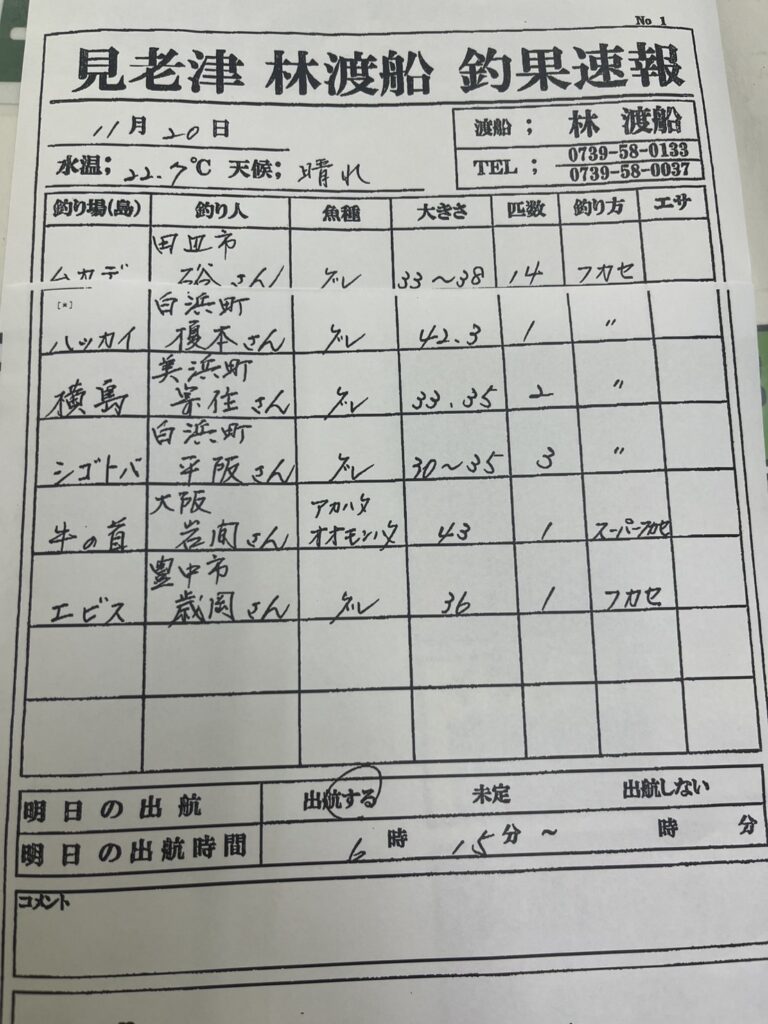 No 1
見老津 林渡船 釣果速報
11月 20日
渡船； 林 渡船
水温； 22.7℃ 天候； 晴れ
TEL； 0739-58-0133
0739-58-0037
釣り場(島) 釣り人 魚種 大きさ 匹数 釣り方 エサ
田辺市
ムカデ 谷さん グレ 33～38 14 フカセ
[*]
白浜町
ハッカイ 榎本さん グレ 42.3 1 〃
美浜町
横島 さん グレ 33.35 2 〃
白浜町
シゴトバ 平阪さん グレ 30～35 3 〃
大阪 アカハタ
牛の首 岩間さん オオモンハタ 43 1 スーパーフカセ
豊中市
エビス 歳岡さん グレ 36 1 フカセ
明日の出航 出航する 未定 出航しない
明日の出航時間 6時 15分～ 時 分
コメント